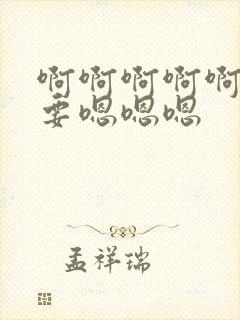 啊啊啊啊啊
要嗯嗯嗯
孟祥瑞